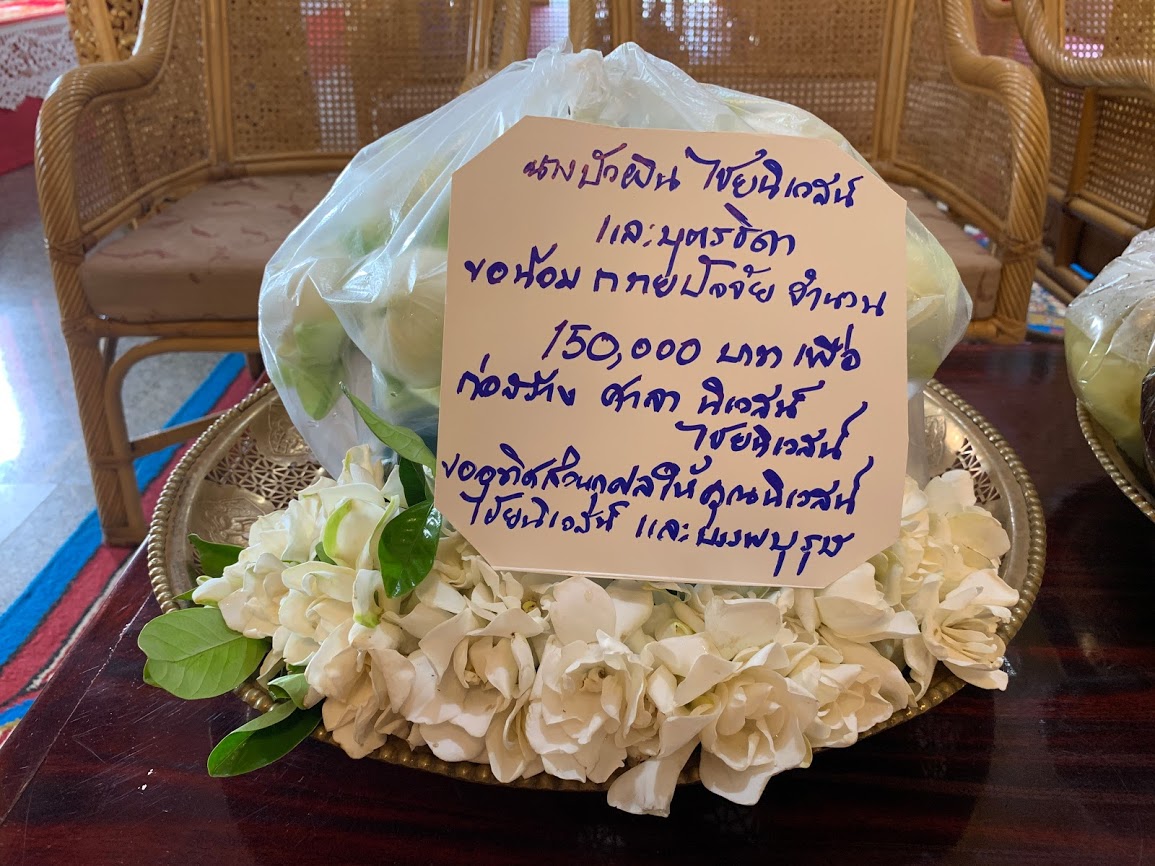 นางบัวผิน ไชยนิเวสน์
และบุตรธิดา
ขอน้อม ถวายปัจจัย จำนวน
150,000 บาท เพื่อ
ก่อสร้าง ศาลา นิเวสน์
ไชยนิเวสน์
ขออุทิศส่วนกุศลให้ คุณนิเวสน์
ไชยนิเวสน์ และบรรพบุรุษ